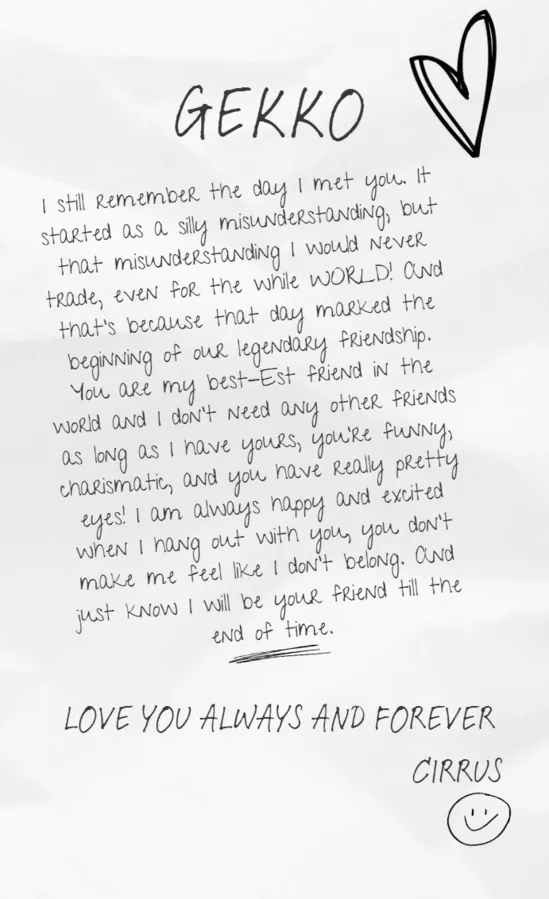 GEKKO
I still remember the day I met you. It
started as a silly misunderstanding, but
that misunderstanding I would never
trade, even for the while WORLD! And
that's because that day marked the
beginning of our legendary friendship.
You are my best-Est friend in the
world and I don't need any other friends
as long as I have yours, you're funny,
charismatic, and you have really pretty
eyes! I am always happy and excited
when I hang out with you, you don't
make me feel like I don't belong. And
just know I will be your friend till the
end of time.
LOVE YOU ALWAYS AND FOREVER
CIRRUS